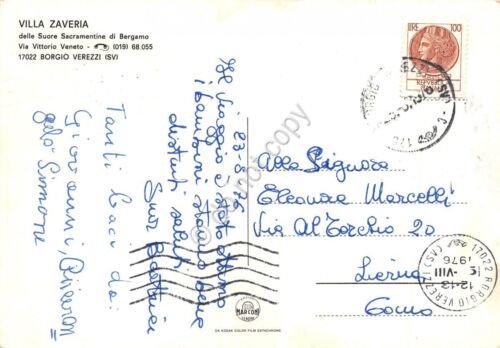 VILLA ZAVERIA
delle Suore Sacramentine di Bergamo
Via Vittorio Veneto - (019) 68.055
17022 BORGIO VEREZZI (SV)
LIRE 100
23.8.76
Il viaggio è stato ottimo
i bambini stanno bene
distinti saluti
Suor
Tanti baci da:
Giovanni,
Simone
Alla Signora
Eleonora Marcelli
Via Al Torchio 20
Lierna
Como
17022 BORGIO VEREZZI (SV)
12-13
-VIII
1976
MARCONI
DA KODAK COLOR FILM EKTACHROME